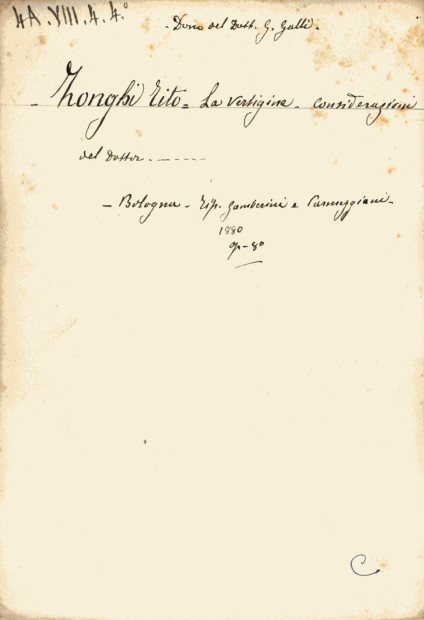 4A.VIII.4.4.°
- Dono del Dott. G. Galli -
- Zonghi Tito = La vertigine - considerazioni
del Dottor - - - - -
- Bologna - Tip. Gamberini e Parmeggiani -
1880
op - 8°
C